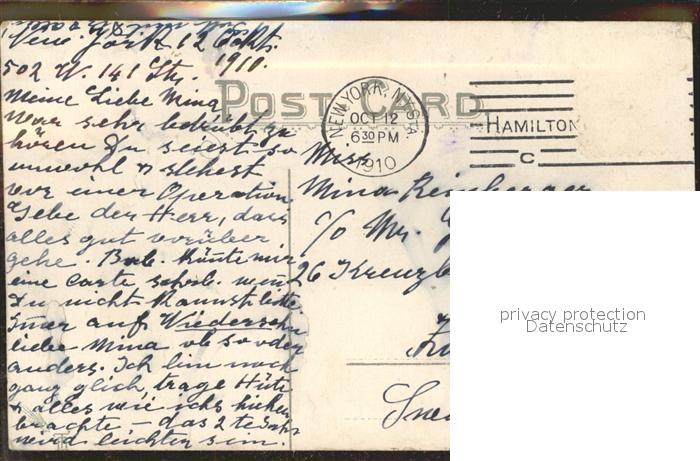 New York 12 Okt.
502 W. 141 Str. 1910.
Meine Liebe Mina
War sehr betrübt zu
hören Du seiest so
unwohl & stehest
vor einer Operation.
Gebe der Herr, dass
alles gut vorüber
gehe. Bob. könnte mir
eine Carte schrb. wenn
Du nicht kannst, bitte.
auf Wiedersehn
liebe Mina ob so oder
anders. Ich bin noch
ganz glich, trage Hüte
& alles wie ichs hieher
brachte – das 2te Jahr
wird leichter sein.
POST CARD
NEW YORK, N.Y. STA.
OCT 12
6 30 PM
1910
HAMILTON
C
Miss
Mina
c/o Mr.
26 Kreuzb
privacy protection
Datenschutz